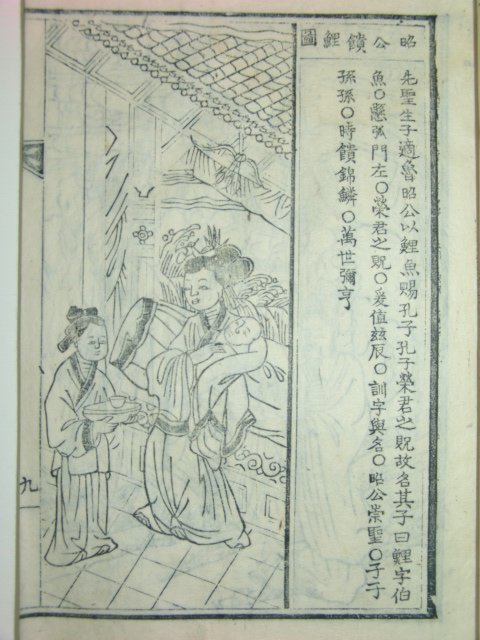 昭公饋鯉圖
先聖生子適魯昭公以鯉魚賜孔子孔子榮君之貺故名其子曰鯉字伯
魚○懸弧門左○榮君之貺○爰值玆辰○訓字與名○昭公崇聖○子子
孫孫○時饋錦鱗○萬世彌亨
九